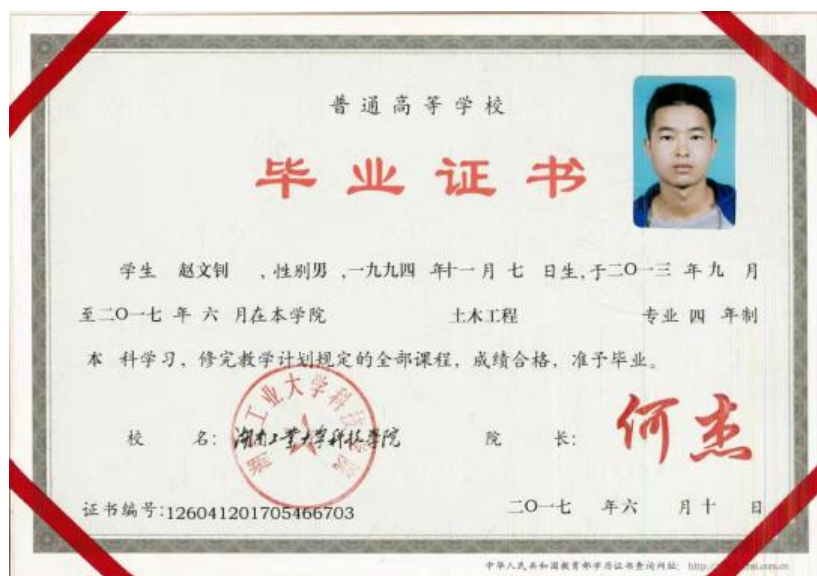 普通高等学校
毕业证书
学生 赵文钊 ，性别男，一九九四 年十一月 七 日生，于二〇一三 年九 月
至二〇一七 年 六 月在本学院 土木工程 专业 四 年制
本 科学习，修完教学计划规定的全部课程，成绩合格，准予毕业。
校 名：湖南工业大学科技学院 院 长：何杰
湖南工业大学科技学院
证书编号：126041201705466703 二〇一七 年六 月十 日
中华人民共和国教育部学历证书查询网址：http://